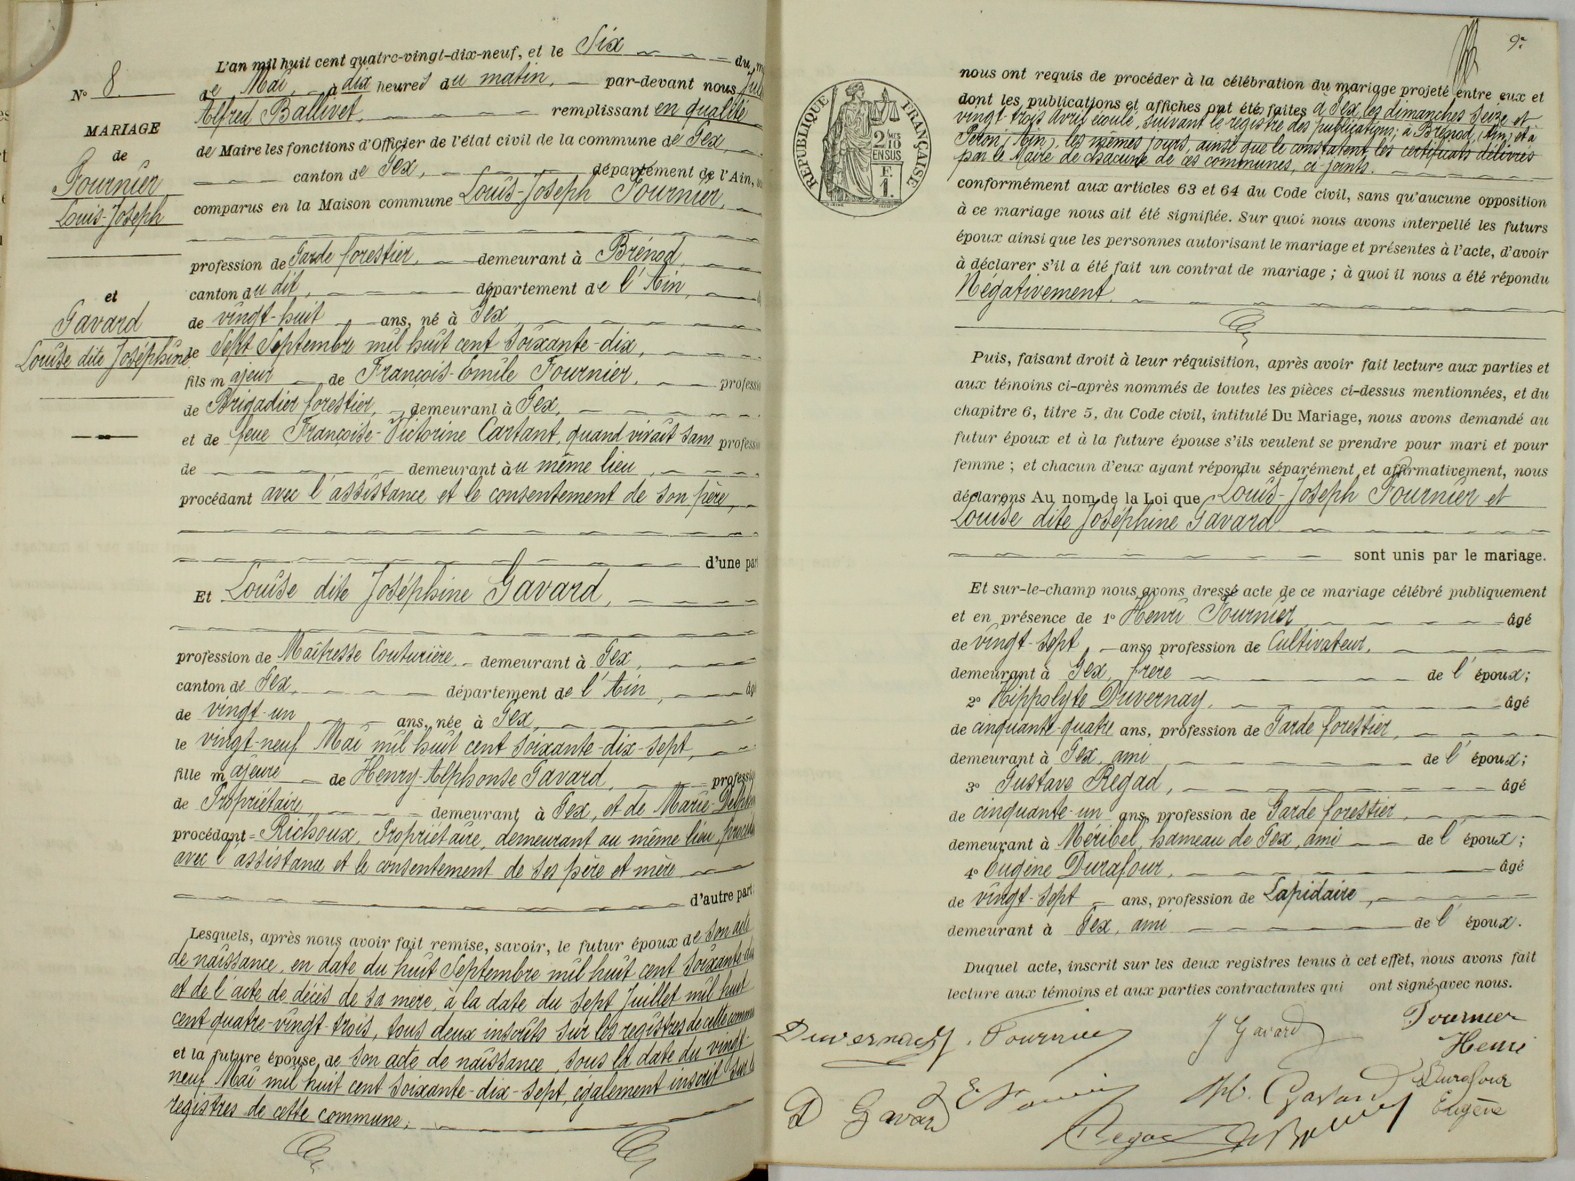 N° 8
MARIAGE
de
Fournier
Louis-Joseph
et
Gavard
Louise dite Joséphine
L'an mil huit cent quatre-vingt-dix-neuf, et le Six du
de Mai, à dix heures du matin, par-devant nous
Alfred Ballivet, remplissant en qualité
de Maire les fonctions d'Officier de l'état civil de la commune de Gex
canton de Gex, département de l'Ain,
comparus en la Maison commune Louis-Joseph Fournier,
profession de Garde forestier, demeurant à Brénod,
canton du dit, département de l'Ain,
de vingt-huit ans, né à Gex
le Sept Septembre mil huit cent soixante-dix,
fils majeur de François-Emile Fournier, profession
de Brigadier forestier, demeurant à Gex,
et de feue Françoise-Victorine Cartant, quand vivait sans profession
de demeurant au même lieu,
procédant avec l'assistance et le consentement de son père,
d'une part
Et Louise dite Joséphine Gavard,
profession de Maîtresse Couturière, demeurant à Gex,
canton de Gex, département de l'Ain,
de vingt-un ans, née à Gex
le vingt-neuf Mai mil huit cent soixante-dix-sept,
fille majeure de Henry-Alphonse Gavard, profession
de Propriétaire demeurant à Gex, et de Marie
procédant Richoux, Propriétaire, demeurant au même lieu,
avec l'assistance et le consentement de ses père et mère
d'autre part.
Lesquels, après nous avoir fait remise, savoir, le futur époux de son acte
de naissance, en date du huit Septembre mil huit cent soixante-dix
et de l'acte de décès de sa mère, à la date du sept Juillet mil huit
cent quatre-vingt-trois, tous deux inscrits sur les registres de cette commune
et la future épouse, de son acte de naissance, sous la date du vingt-
neuf Mai mil huit cent soixante-dix-sept, également inscrit sur les
registres de cette commune,
RÉPUBLIQUE FRANÇAISE
2/10
EN SUS
1 F.
nous ont requis de procéder à la célébration du mariage projeté entre eux et
dont les publications et affiches ont été faites à Gex, les dimanches seize et
vingt-trois avril écoulé, suivant le registre des publications; à Brénod, (Ain) et à
(Ain), les mêmes jours, ainsi que le constatent les certificats délivrés
par le Maire de chacune de ces communes, ci-joints.
conformément aux articles 63 et 64 du Code civil, sans qu'aucune opposition
à ce mariage nous ait été signifiée. Sur quoi nous avons interpellé les futurs
époux ainsi que les personnes autorisant le mariage et présentes à l'acte, d'avoir
à déclarer s'il a été fait un contrat de mariage ; à quoi il nous a été répondu
Négativement.
Puis, faisant droit à leur réquisition, après avoir fait lecture aux parties et
aux témoins ci-après nommés de toutes les pièces ci-dessus mentionnées, et du
chapitre 6, titre 5, du Code civil, intitulé Du Mariage, nous avons demandé au
futur époux et à la future épouse s'ils veulent se prendre pour mari et pour
femme ; et chacun d'eux ayant répondu séparément et affirmativement, nous
déclarons Au nom de la Loi que Louis-Joseph Fournier et
Louise dite Joséphine Gavard
sont unis par le mariage.
Et sur-le-champ nous avons dressé acte de ce mariage célébré publiquement
et en présence de 1° Henri Fournier âgé
de vingt-sept ans, profession de Cultivateur,
demeurant à Gex, frère de l'époux;
2° Hippolyte Duvernay, âgé
de cinquante-quatre ans, profession de Garde forestier,
demeurant à Gex, ami de l'époux;
3° Gustave Regad, âgé
de cinquante-un ans, profession de Garde forestier,
demeurant à Meribel, hameau de Gex, ami de l'époux;
4° Eugène Durafour, âgé
de vingt-sept ans, profession de Lapidaire,
demeurant à Gex, ami de l'époux.
Duquel acte, inscrit sur les deux registres tenus à cet effet, nous avons fait
lecture aux témoins et aux parties contractantes qui ont signé avec nous.
Duvernay H. Fournier J Gavard Fournier
Henri
Gavard Gavard Durafour
Eugène
Regad